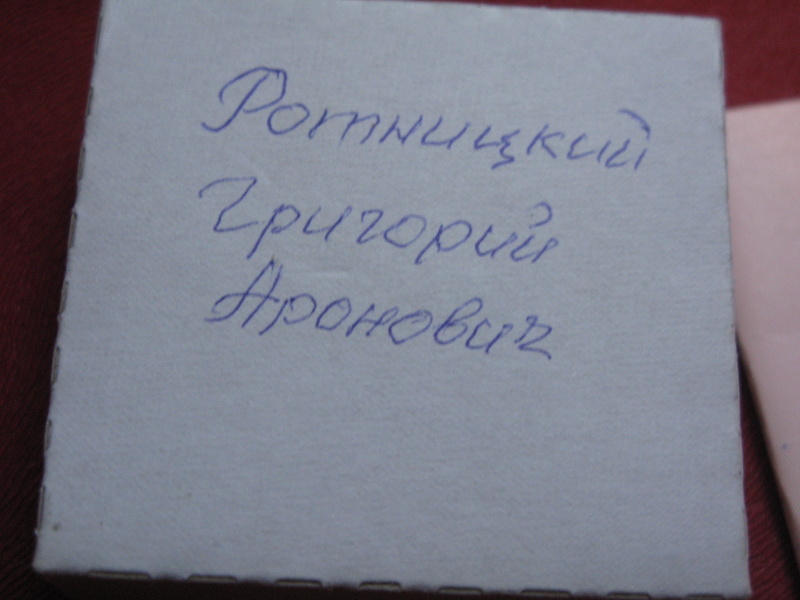 Ротницкий
Григорий
Аронович